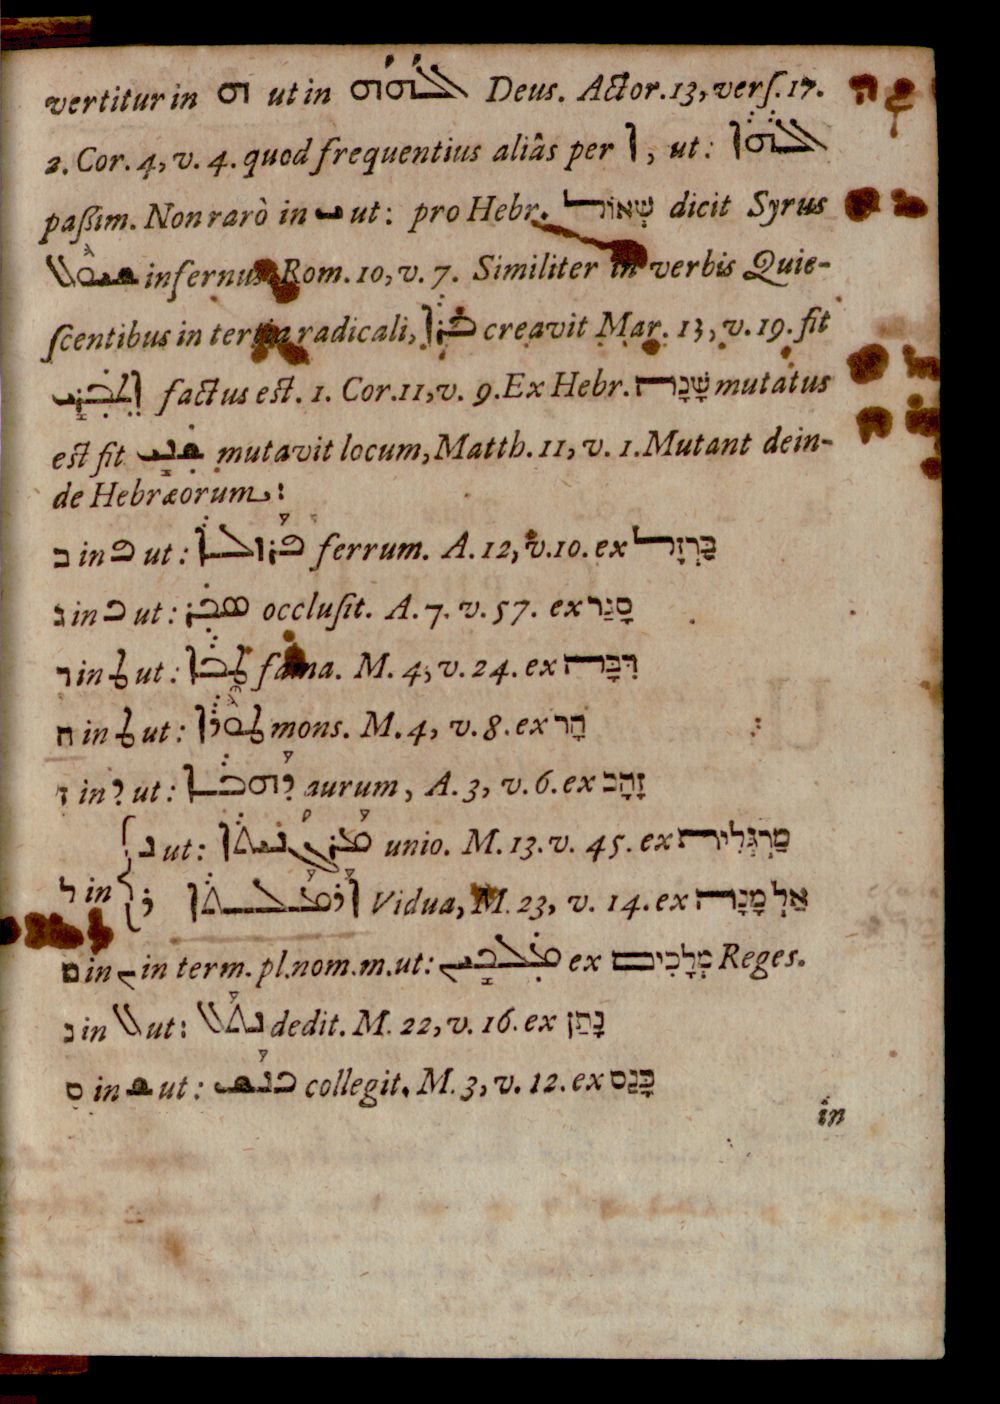 vertitur in ܘܗ ut in ܐܠܗܘܗܘ Deus. Actor. 13, verſ. 17.
2. Cor. 4, v. 4. quod frequentius aliâs per ܐ, ut: ܐܠܗܐ
paßim. Non rarò in ܝ ut: pro Hebr. שְׁאוֹל dicit Syrus
ܫܝܘܠ infernus Rom. 10, v. 7. Similiter in verbis Quie-
ſcentibus in tertia radicali, ܒܪܐ creavit Mar. 13, v. 19. fit
ܐܬܒܪܝ factus eſt. 1. Cor. 11, v. 9. Ex Hebr. שָׁנָה mutatus
eſt fit ܫܢܝ mutavit locum, Matth. 11, v. 1. Mutant dein-
de Hebræorum:
ב in ܦ ut: ܦܪܙܠܐ ferrum. A. 12, v. 10. ex בַּרְזָל
ג in ܟ ut: ܣܟܪ occluſit. A. 7. v. 57. ex סָגַר
ד in ܛ ut: ܛܒܐ fama. M. 4, v. 24. ex דִּבָּה
ה in ܛ ut: ܛܘܪܐ mons. M. 4, v. 8. ex הָר
ז in ܕ ut: ܕܗܒܐ aurum, A. 3, v. 6. ex זָהָב
ܢ ut: ܡܪܓܢܝܬܐ unio. M. 13. v. 45. ex מַרְגְּלִית
ל in ܪ ܐܪܡܠܬܐ Vidua, M. 23, v. 14. ex אַלְמָנָה
ם in ܢ in term. pl. nom. m. ut: ܡܠܟܝܢ ex מְלָכִים Reges.
נ in ܠ ut: ܢܬܠ dedit. M. 22, v. 16. ex נָתַן
ס in ܫ ut: ܟܢܫ collegit. M. 3, v. 12. ex כָּנַס
in